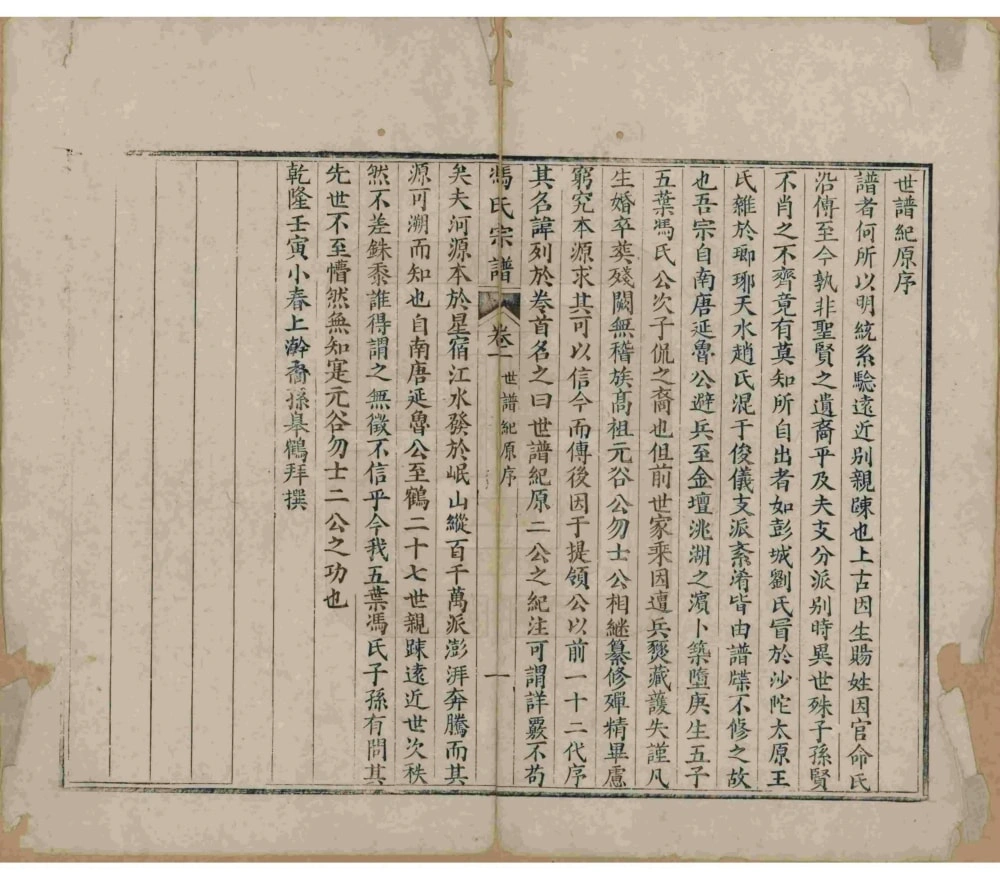 世譜紀原序
譜者何所以明統系驗遠近別親踈也上古因生賜姓因官命氏
沿傳至今孰非聖賢之遺裔乎及夫支分派別時異世殊子孫賢
不肖之不齊竟有莫知所自出者如彭城劉氏冒於沙陀太原王
氏雜於瑯琊天水趙氏混于俊儀支派紊淆皆由譜牒不修之故
也吾宗自南唐延魯公避兵至金壇洮湖之濱卜築墮庚生五子
五葉馮氏公次子侃之裔也但前世家乘因遭兵燹藏護失謹凡
生婚卒葬殘闕無稽族高祖元谷公勿士公相継纂修殫精畢慮
窮究本源求其可以信今而傳後因于提領公以前一十二代序
其名諱列於卷首名之曰世譜紀原二公之紀注可謂詳覈不苟
馮氏宗譜 卷一 世譜紀原序 一
矣夫河源本於星宿江水發於岷山縱百千萬派澎湃奔騰而其
源可溯而知也自南唐延魯公至鶴二十七世親踈遠近世次秩
然不差銖黍誰得謂之無徵不信乎今我五葉馮氏子孫有問其
先世不至懵然無知寔元谷勿士二公之功也
乾隆壬寅小春上澣裔孫皋鶴拜撰